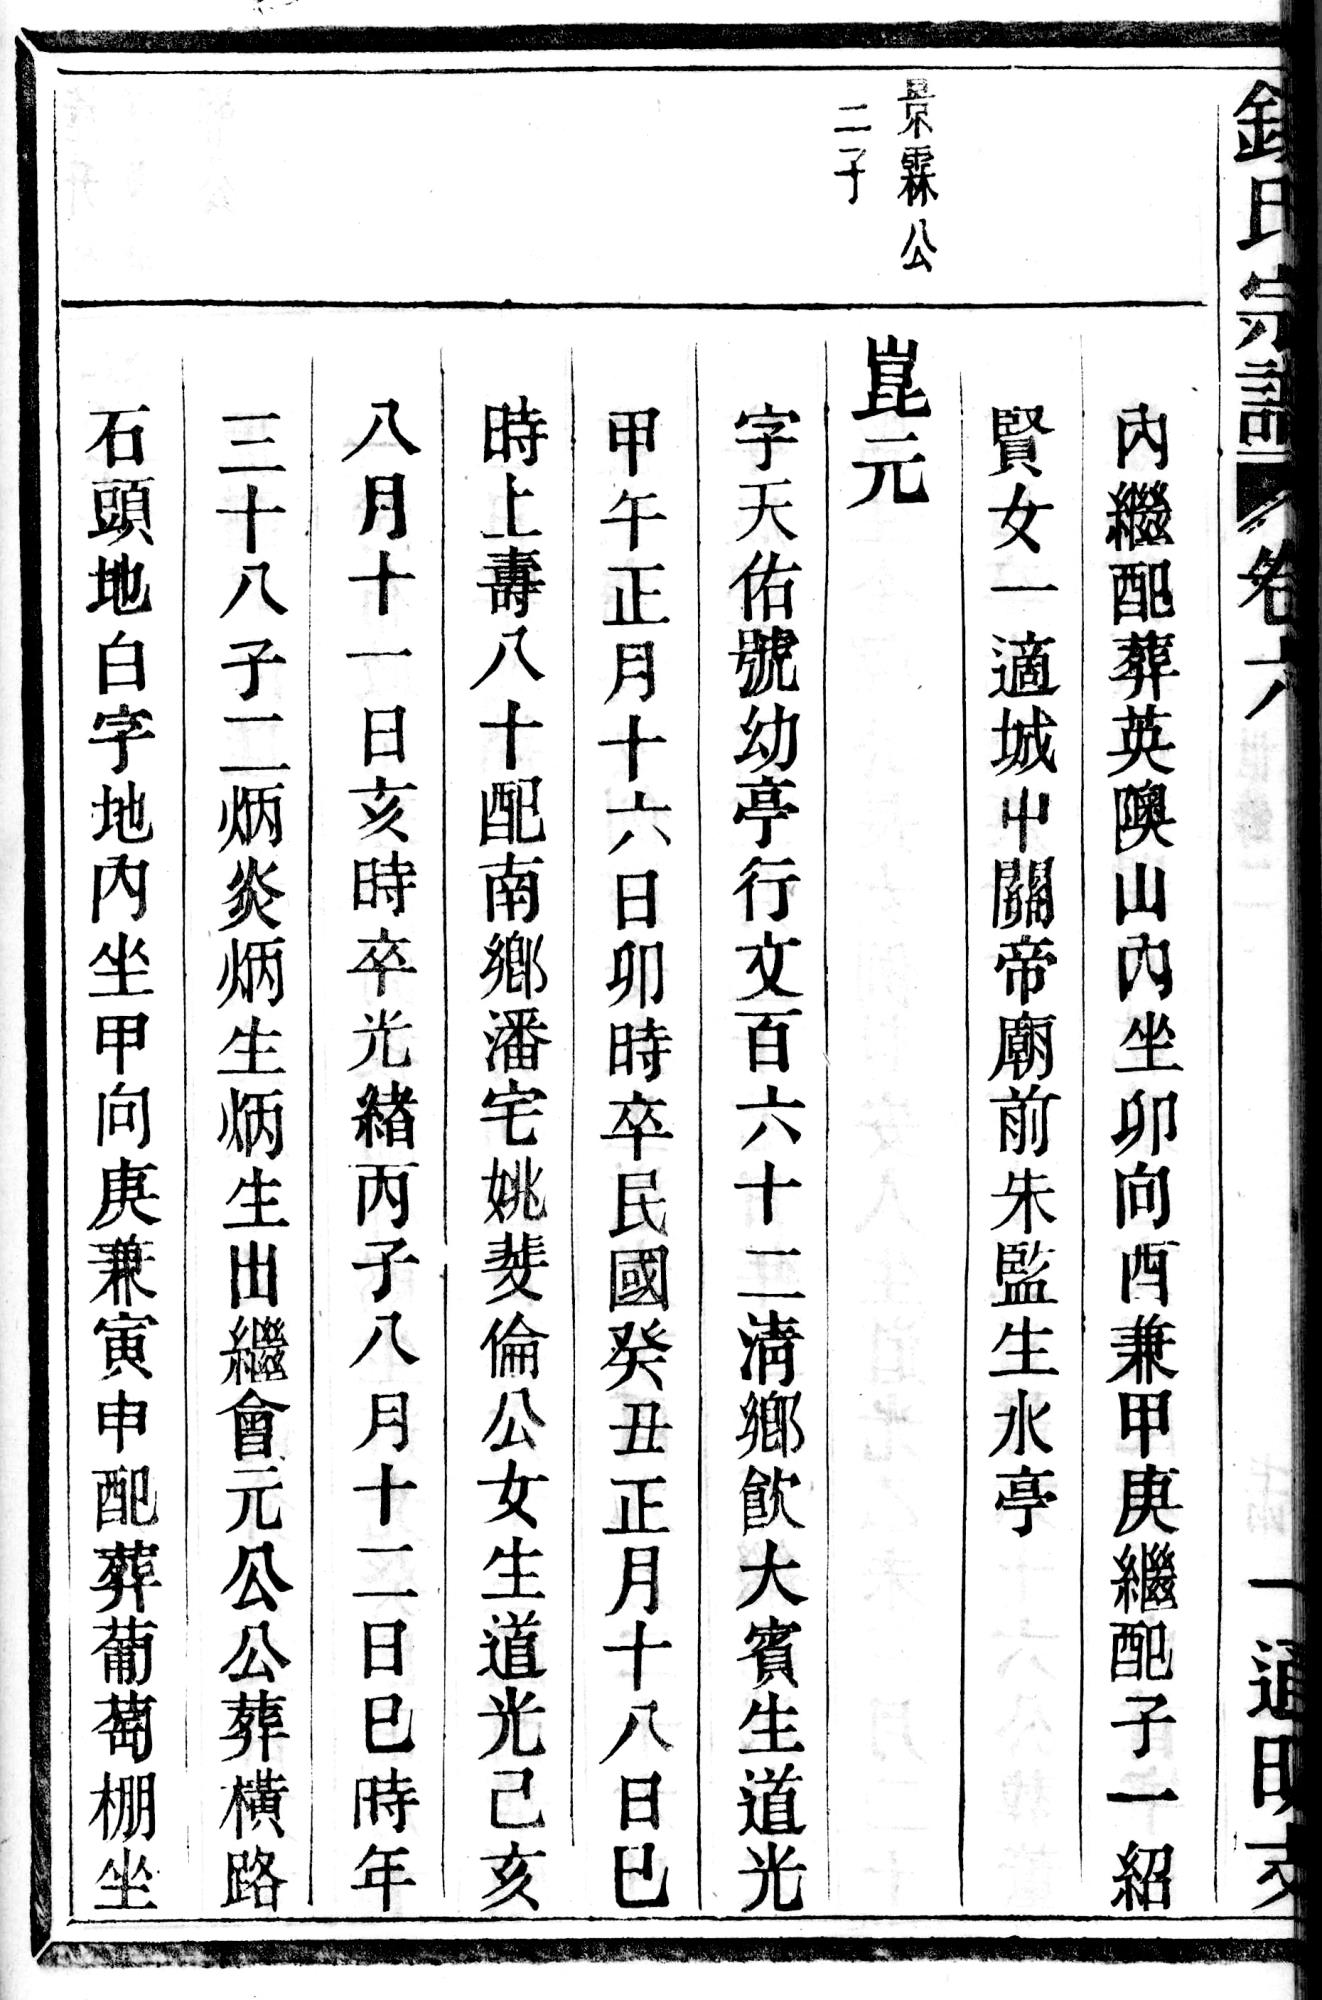 錢氏宗譜 卷六 一 通明支
內繼配葬英隩山內坐卯向酉兼甲庚繼配子一紹
賢女一適城中關帝廟前朱監生水亭
景霖公
二子
崑元
字天佑號幼亭行文百六十二淸鄉飮大賓生道光
甲午正月十六日卯時卒民國癸丑正月十八日巳
時上壽八十配南鄉潘宅姚斐倫公女生道光己亥
八月十一日亥時卒光緖丙子八月十二日巳時年
三十八子二炳炎炳生炳生出繼會元公公葬橫路
石頭地白字地內坐甲向庚兼寅申配葬葡萄棚坐